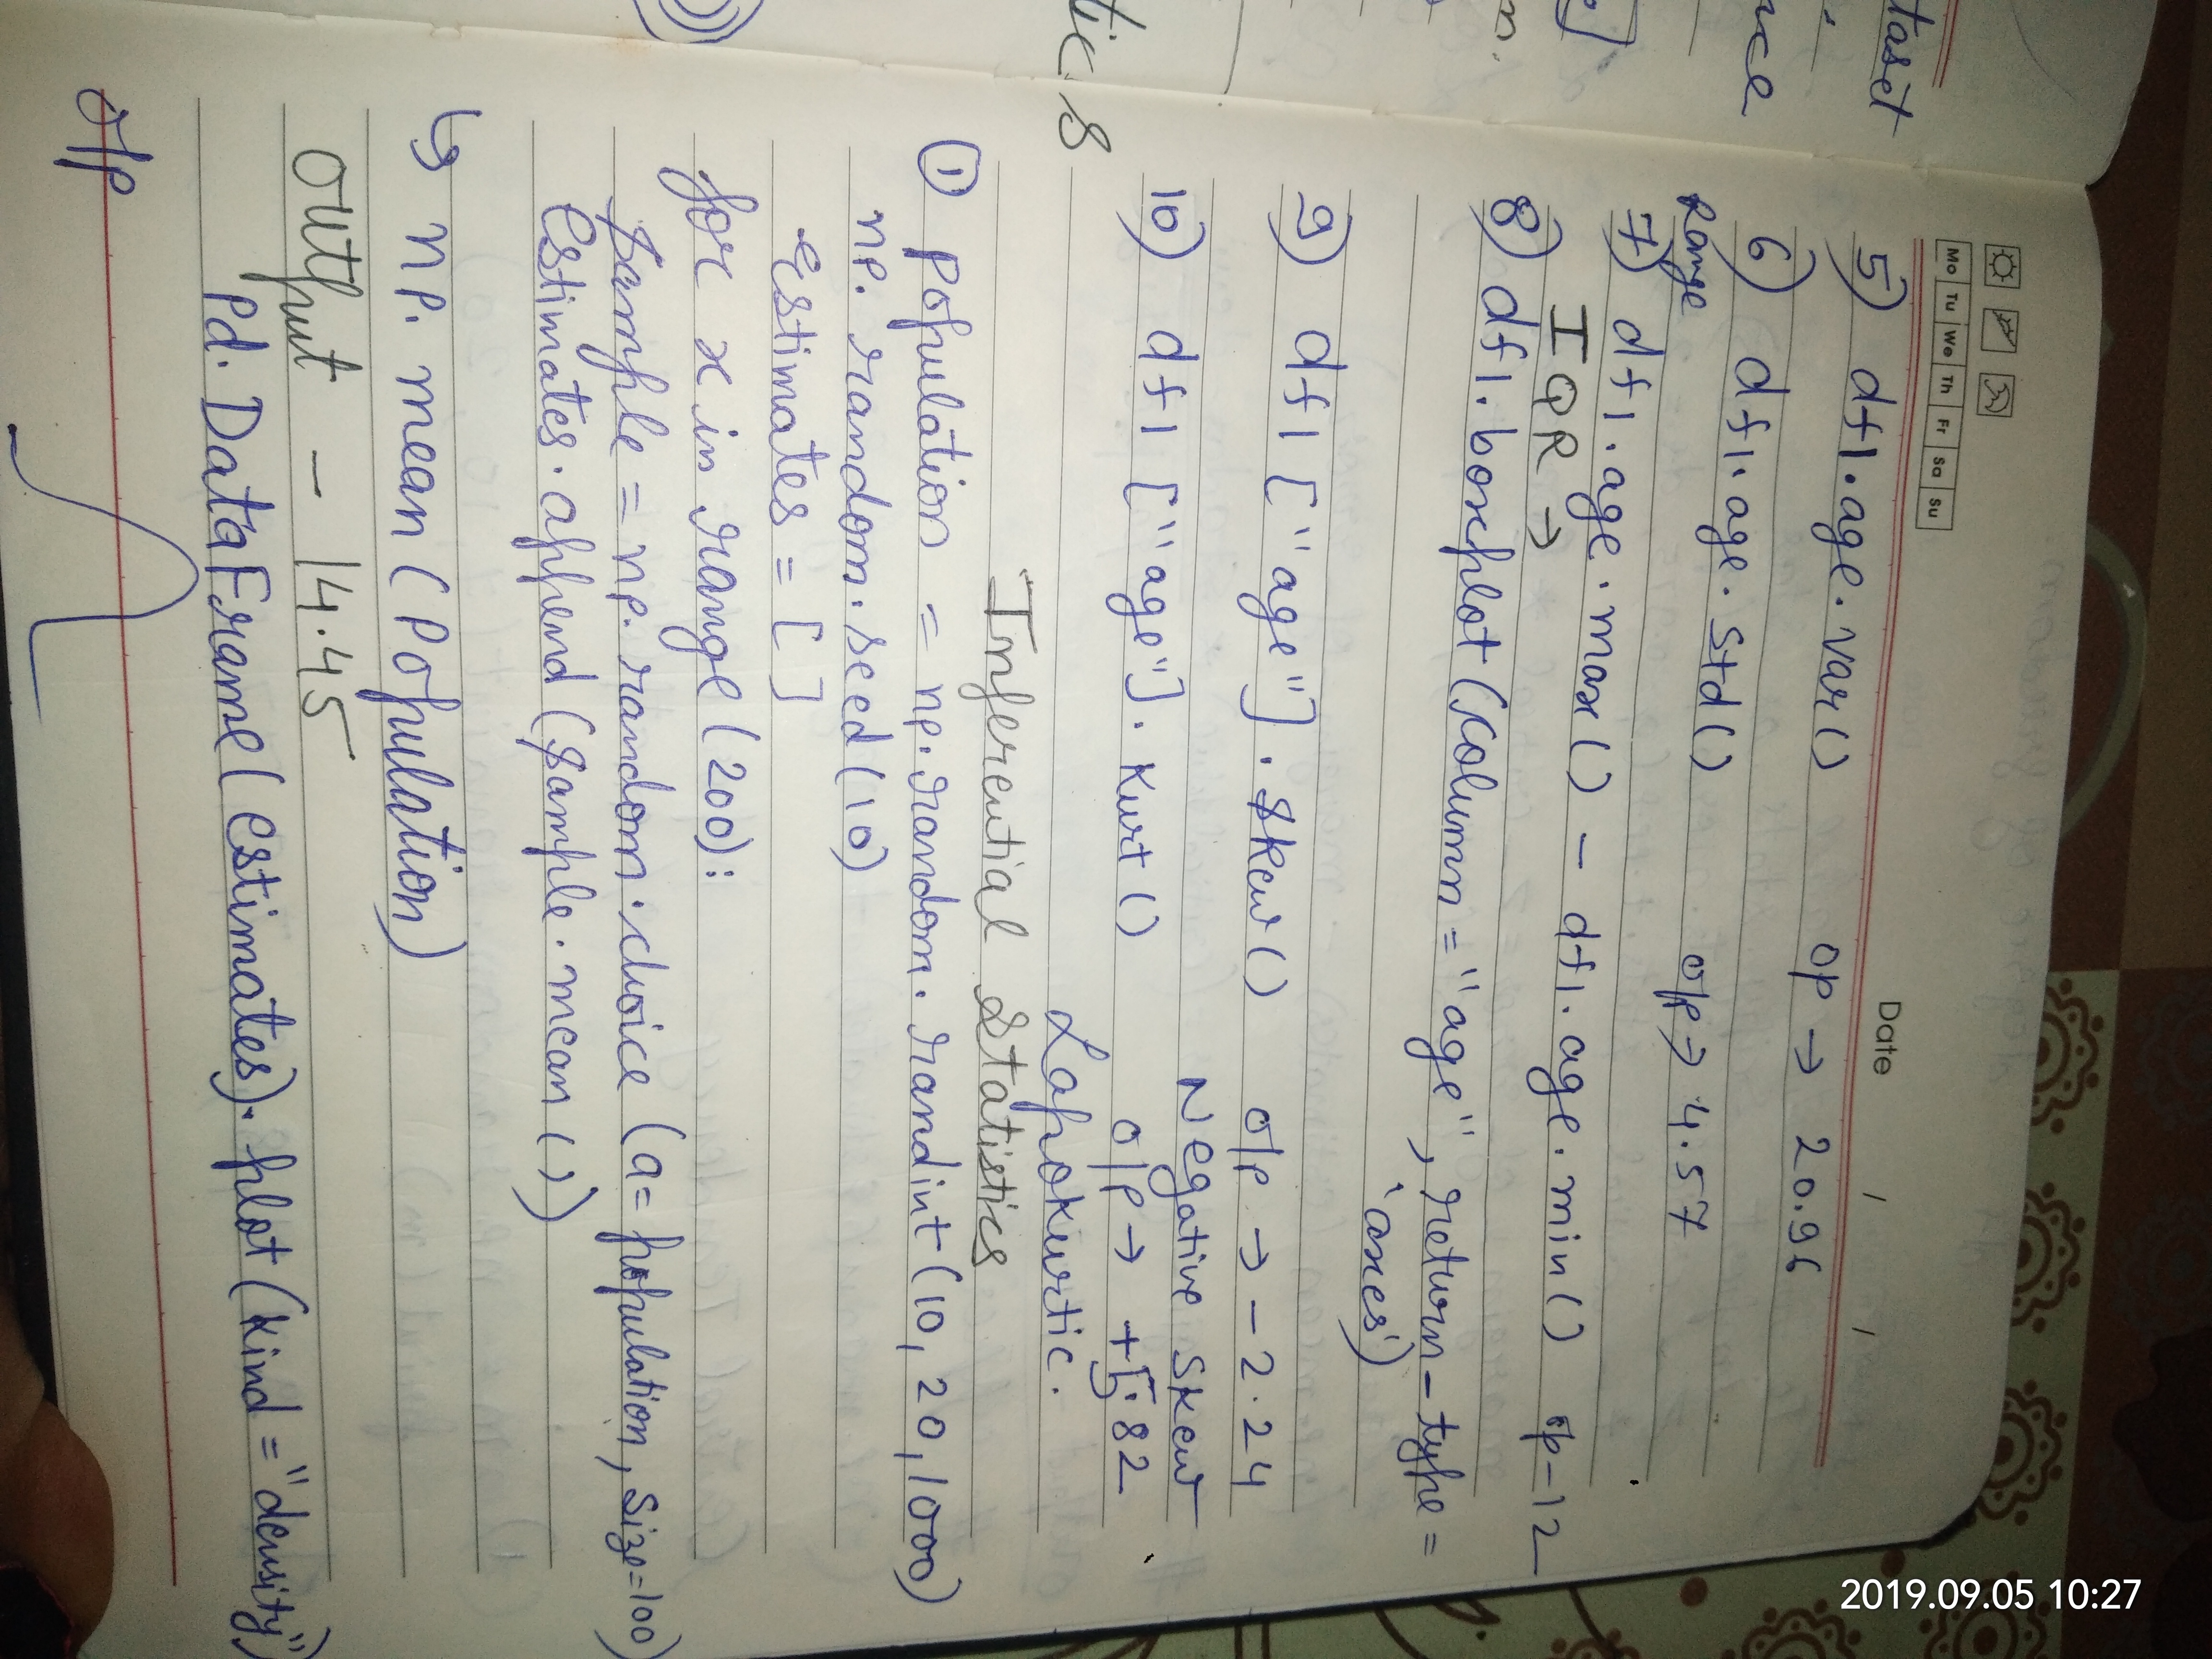 taset
nce
n.
tics
Mo Tu We Th Fr Sa Su
Date / /
5) df1.age.var() op → 20.96
6) df1.age.std() o/p → 4.57
Range
7) df1.age.max() - df1.age.min() o/p - 12
IQR →
8) df1.boxplot(column = "age", return-type =
'axes')
9) df1["age"].skew() o/p → -2.24
Negative skew
10) df1["age"].Kurt() o/p → +5.82
Lapokurtic.
Inferential Statistics
① Population = np.random.randint(10, 20, 1000)
np.random.seed(10)
estimates = []
for x in range(200):
sample = np.random.choice (a= population, size=100)
estimates.append(sample.mean())
↳ np.mean(Population)
output - 14.45
Pd.DataFrame(estimates).plot(kind = "density")
o/p
2019.09.05 10:27